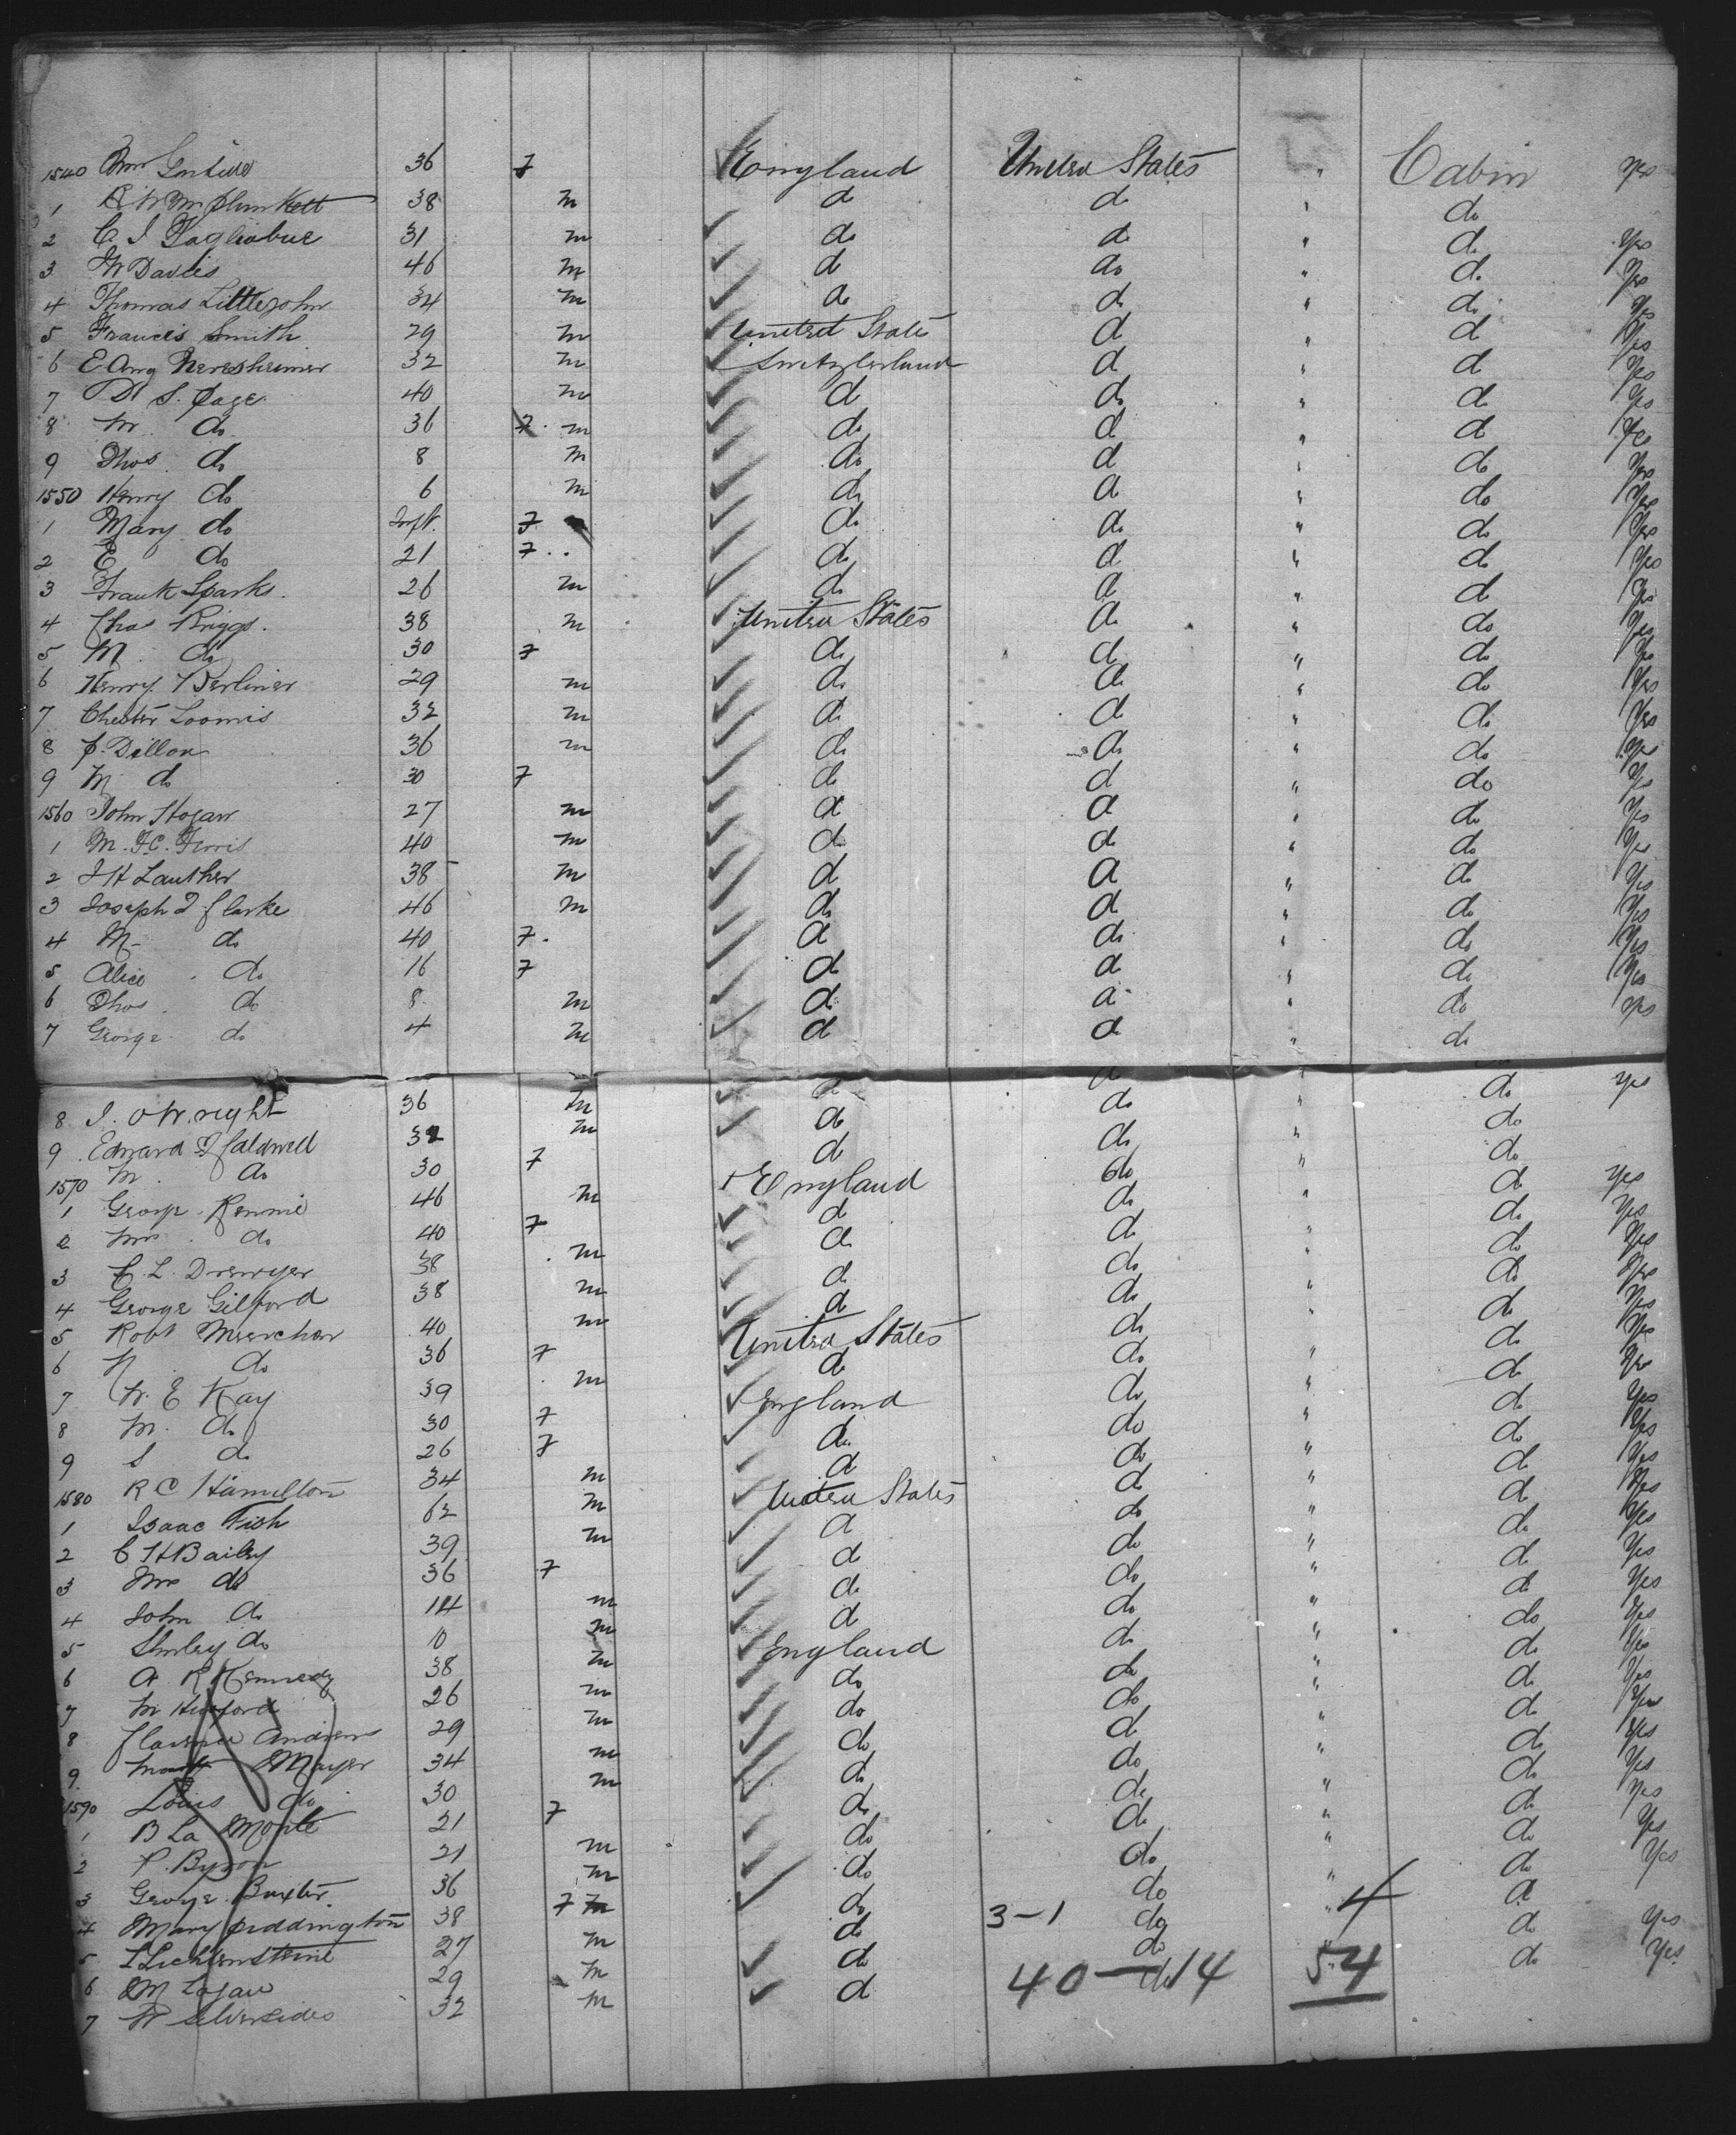 1540 Mrs 36 7 England United States " Cabin Yes
1 R W M Plunkett 38 m do do " do
2 C. I Tagliabue 31 m do do " do Yes
3 W Davies 46 m do do " do Yes
4 Thomas Littlejohn 34 m do do " do Yes
5 Francis Smith 29 m United States do " do Yes
6 E Aug Neresheimer 32 m Switzerland do " do Yes
7 Dr S. Page 40 m do do " do Yes
8 M do 36 7 m do do " do Yes
9 Thos do 8 m do do " do Yes
1550 Henry do 6 m do do " do Yes
1 Mary do Inft. 7 do do " do Yes
2 E do 21 7 do do " do Yes
3 Frank Sparks. 26 m do do " do Yes
4 Chas Briggs. 38 m United States do " do Yes
5 M do 30 7 do do " do Yes
6 Henry Berliner 29 m do do " do Yes
7 Chester Loomis 32 m do do " do Yes
8 J. Dillon 36 m do do " do Yes
9 M do 30 7 do do " do Yes
1560 John Hogan 27 m do do " do Yes
1 M. F.C. Ferris 40 m do do " do Yes
2 J H Lauther 38 m do do " do Yes
3 Joseph I Clarke 46 m do do " do Yes
4 M do 40 7 do do " do Yes
5 Alice do 16 7 do do " do Yes
6 Thos do 8 m do do " do Yes
7 George do 4 m do do " do
8 J. O Wright 36 m do do " do Yes
9 Edward F Caldwell 32 m do do " do
1570 M do 30 7 do do " do
1 George Rennie 46 m England do " do Yes
2 Mrs do 40 7 do do " do Yes
3 C. L. Drewyer 38 m do do " do Yes
4 George Gilford 38 m do do " do Yes
5 Robt 40 m United States do " do Yes
6 N do 36 7 do do " do Yes
7 W. E Kay 39 m England do " do Yes
8 M. do 30 7 do do " do Yes
9 S do 26 7 do do " do Yes
1580 R C Hamilton 34 m United States do " do Yes
1 Isaac Fish 62 m do do " do Yes
2 C H Bailey 39 m do do " do Yes
3 Mrs do 36 7 do do " do Yes
4 John do 14 m do do " do Yes
5 Shirley do 10 m England do " do Yes
6 A R Kennedy 38 m do do " do Yes
7 M 26 m do do " do Yes
8 Clarence Andrews 29 m do do " do Yes
9 Mayer 34 m do do " do Yes
1590 Louis do 30 m do do " do Yes
1 B La Monte 21 7 do do " do Yes
2 P. Byron 21 m do do " do Yes
3 George Baxter 36 m do do " do
4 Mary Piddington 38 7 m do 3-1 do 4 do Yes
5 L Lichtenstine 27 m do do " do Yes
6 M Logan 29 m do 40-14 do 54
7 W Silversides 32 m do